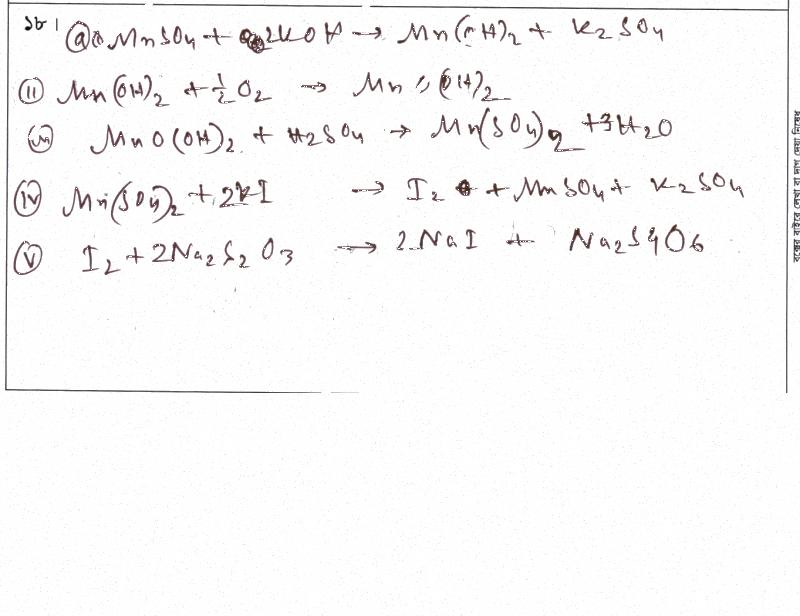 ১৮। (a) MnSO4 + 2KOH → Mn(OH)2 + K2SO4
(ii) Mn(OH)2 + 1/2 O2 → Mn (OH)2
(iii) MnO(OH)2 + H2SO4 → Mn(SO4)2 + 3H2O
(iv) Mn(SO4)2 + 2KI → I2 + MnSO4 + K2SO4
(v) I2 + 2Na2S2O3 → 2NaI + Na2S4O6
বক্সের বাইরে লেখা বা দাগ দেয়া নিষেধ